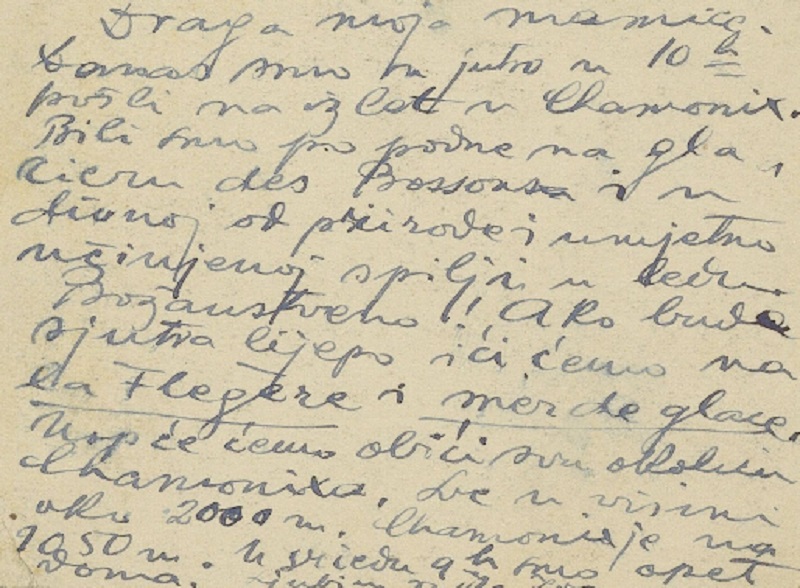 Draga moja mamicg.
Danas smo u jutro u 10 h
pošli na izlet u Chamonix.
Bili smo po podne na gla
cieru des Bossonsa i u
divnoj od prirode i umjetno
učinjenoj spilji u ledu.
Božanstveno!! Ako bude
sjutra lijepo ići ćemo na
la Flegère i mer de glace.
Uopće ćemo obići svu okolicu
Chamonixa. Sve u visini
oko 2000 m. Chamonix je na
1050 m. U sriedu 9 h smo opet
doma.